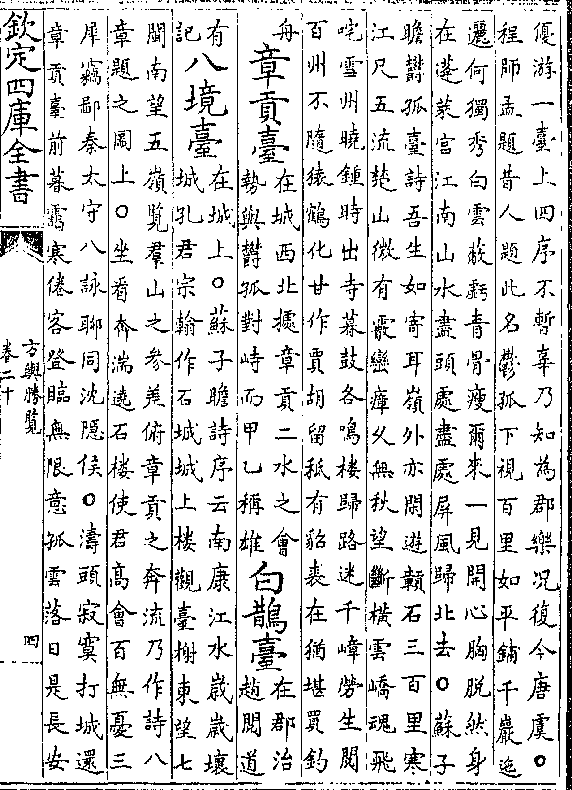 優游一臺上四序不暫辜乃知為郡樂况復今唐虞○
程師孟題昔人題此名鬱孤下視百里如平鋪千巖迤
邐何獨秀白雲蔽虧青骨瘦爾來一見開心胸脱然身
在蓬萊宫江南山水盡頭處盡處屏風歸北去○蘇子
瞻鬱孤臺詩吾生如寄耳嶺外亦閑遊贛石三百里寒
江尺五流楚山微有霰蠻瘴久無秋望斷横雲嶠魂飛
咤雪州曉鍾時出寺暮鼓各鳴樓歸路迷千嶂勞生閱
百州不隨猿鶴化甘作賈胡留秪有貂裘在猶堪買釣
舟
章貢臺
在城西北據章貢二水之會
勢與鬱孤對峙而甲乙稱雄
白鵲臺
在郡治
趙閱道
有
記
八境臺
在城上○蘇子瞻詩序云南康江水歲歲壞
城孔君宗翰作石城城上樓觀臺榭東望七
閩南望五嶺覽羣山之參差俯章貢之奔流乃作詩八
章題之圖上○坐看奔湍遶石樓使君髙會百無憂三
犀竊鄙秦太守八詠聊同沈隱侯○濤頭寂寞打城還
章貢臺前暮靄寒倦客登臨無限意孤雲落日是長安
欽定四庫全書
方輿勝覽
卷二十
四